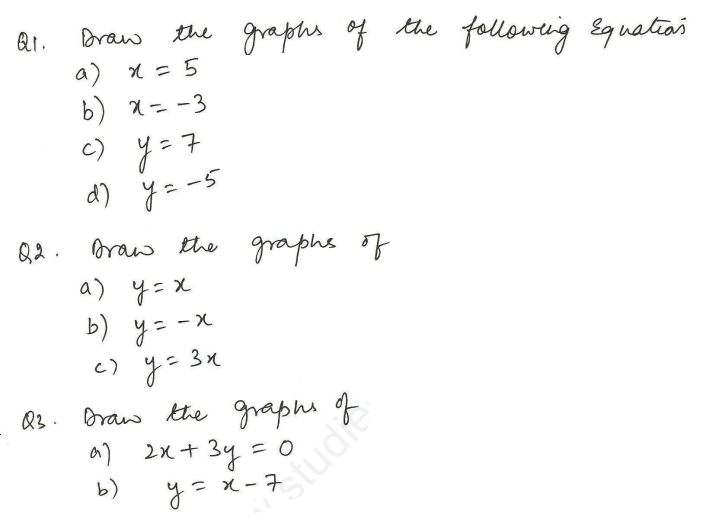 Q1. Draw the graphs of the following Equations
a) x = 5
b) x = -3
c) y = 7
d) y = -5
Q2. Draw the graphs of
a) y = x
b) y = -x
c) y = 3x
Q3. Draw the graphs of
a) 2x + 3y = 0
b) y = x - 7
studie